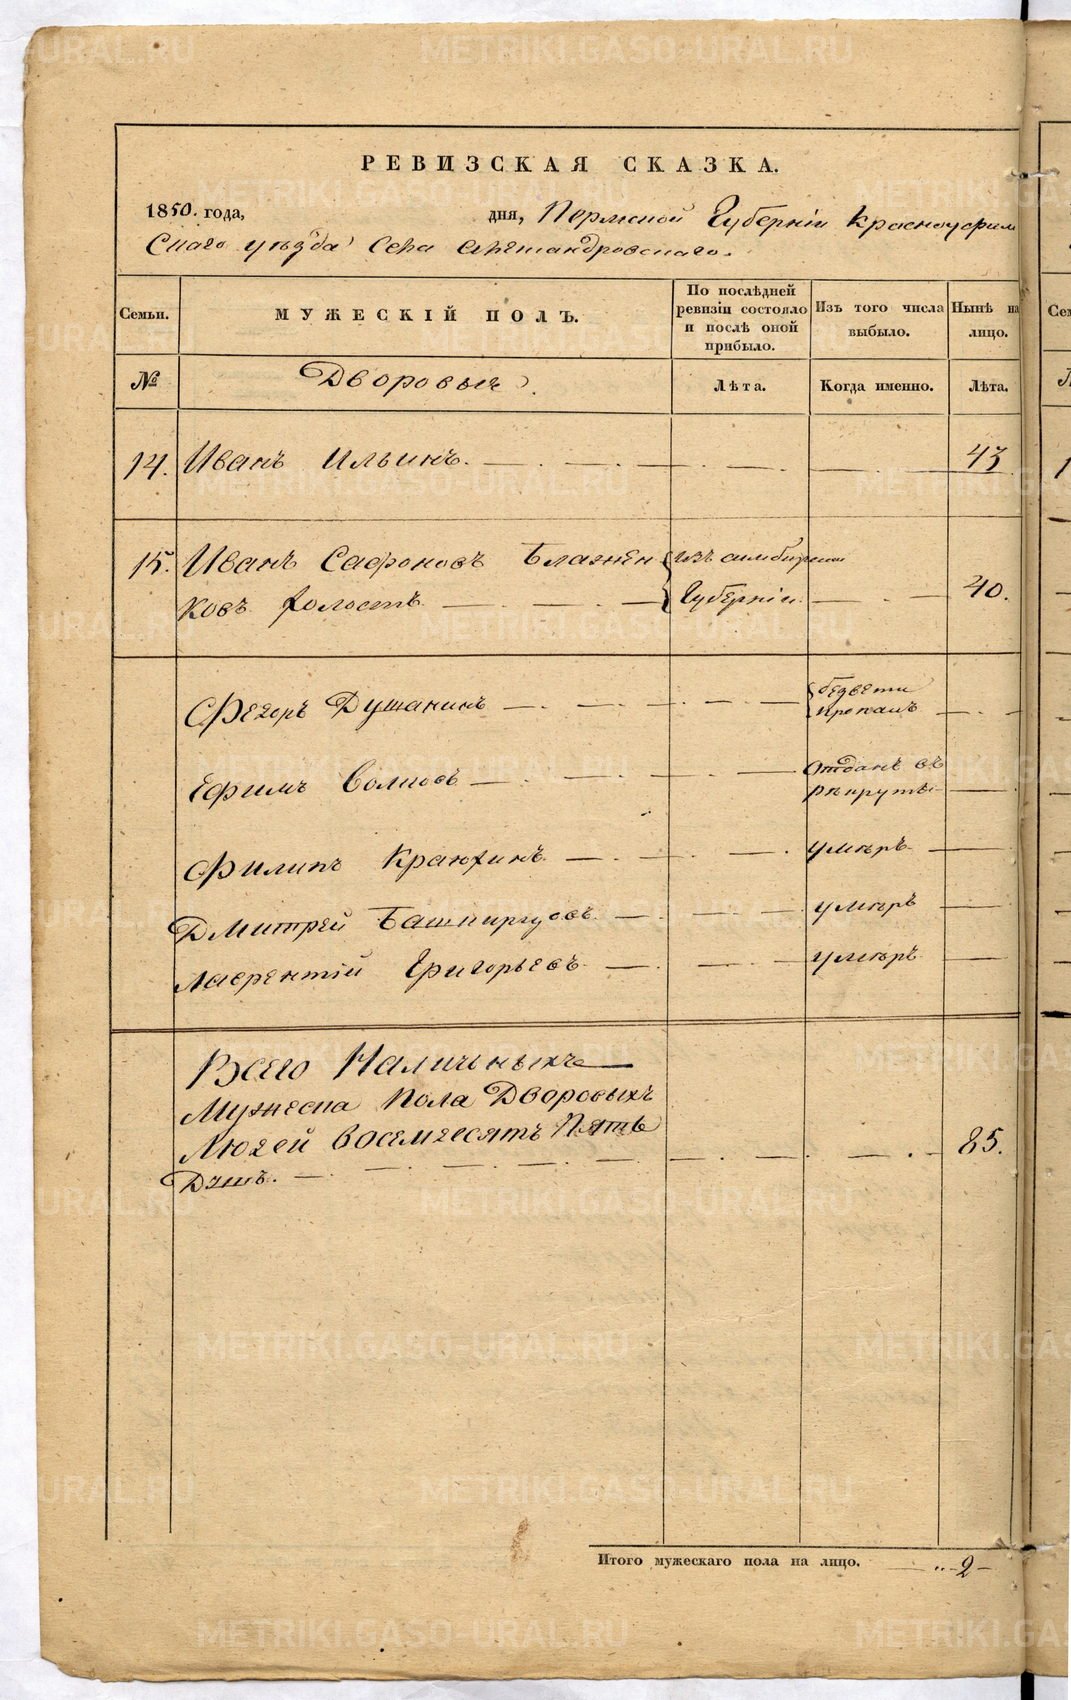 РЕВИЗСКАЯ СКАЗКА.
1850. года, дня, Пермской Губерніи Красноуфим
скаго уѣзда Села Александровскаго.
Семьи. МУЖЕСКІЙ ПОЛЪ. По послѣдней ревизіи состояло и послѣ оной прибыло. Изъ того числа выбыло. Нынѣ на лицо.
№ Дворовые. Лѣта. Когда именно. Лѣта.
14. Иванъ Ильинъ. 43
15. Иванъ Сафоновъ Блажен Изъ симбирской
ковъ холостъ Губерніи. 40.
Федоръ Душанинъ безвѣсти
пропалъ
Ефимъ Волковъ Отданъ въ
рѣкруты
Филипъ Краюхинъ умѣръ
Дмитрей Башкирцовъ умѣръ
Лаврентій Григорьевъ умѣръ
Всего Наличныхъ
Мужеска Пола Дворовыхъ
Людей восемдесятъ Пять
Душъ. 85.
Итого мужескаго пола на лицо. 2
METRIKI.GASO-URAL.RU